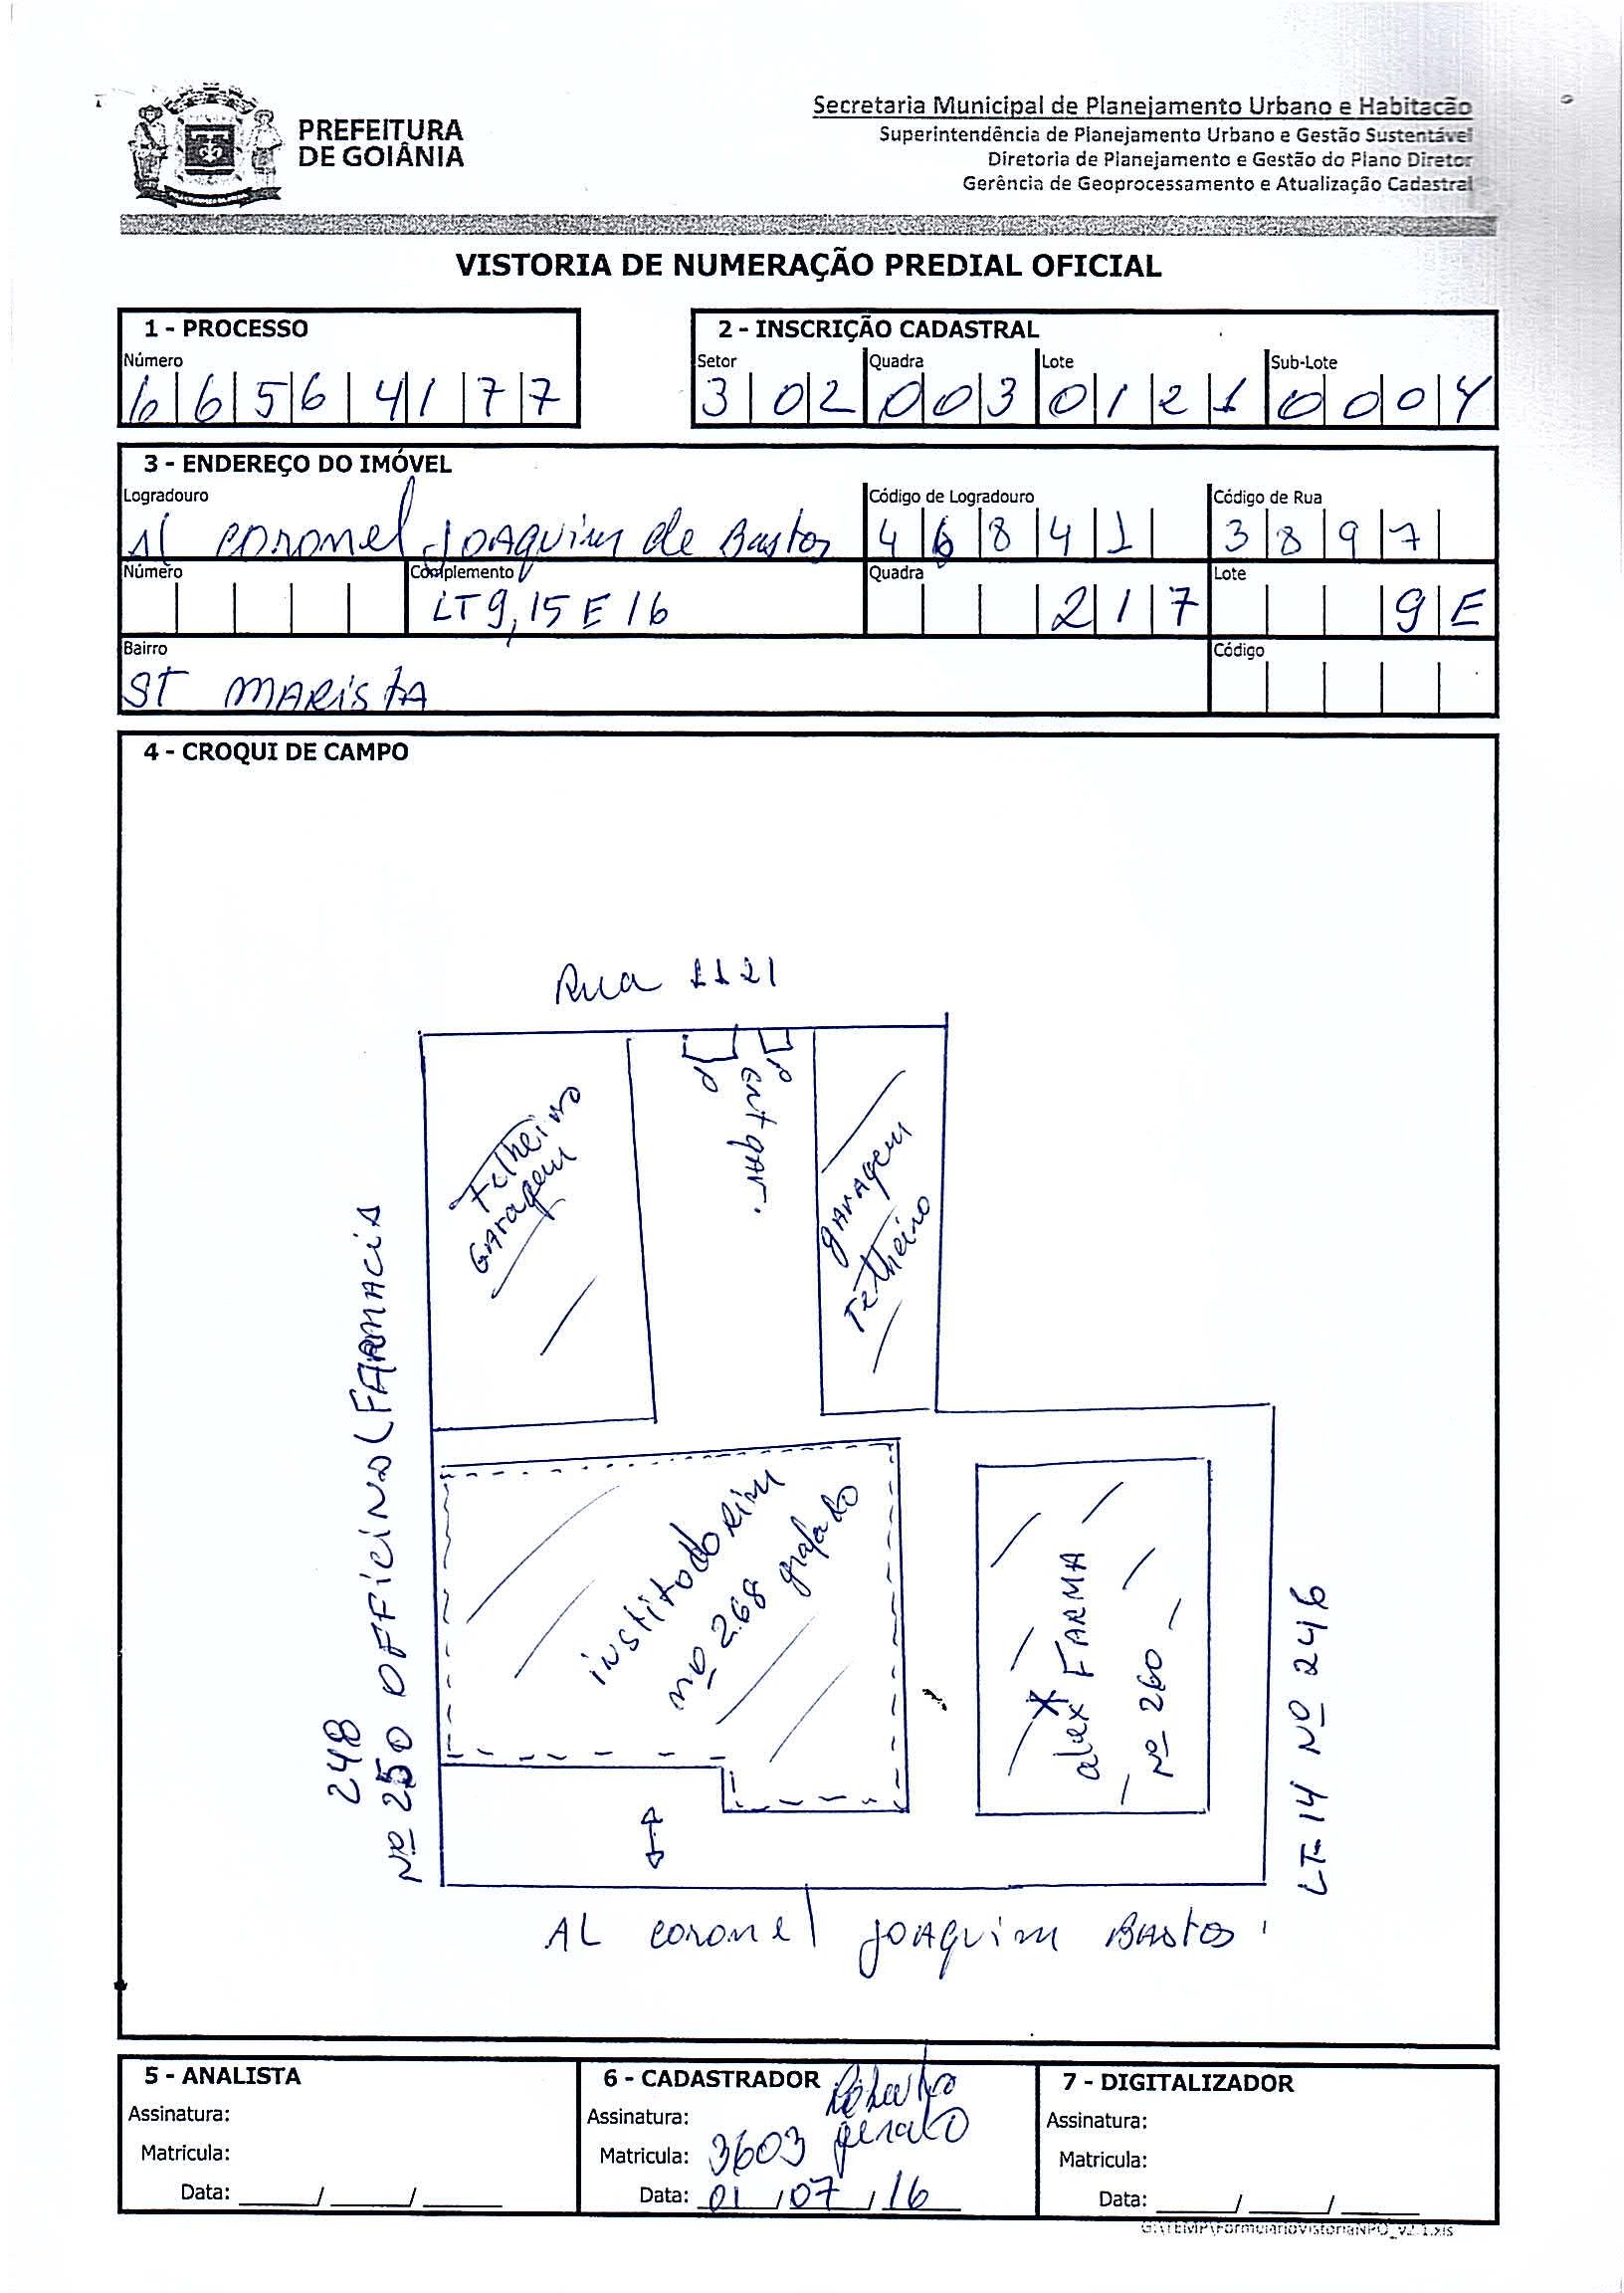 PREFEITURA
DE GOIÂNIA
Secretaria Municipal de Planejamento Urbano e Habitação
Superintendência de Planejamento Urbano e Gestão Sustentável
Diretoria de Planejamento e Gestão do Plano Diretor
Gerência de Geoprocessamento e Atualização Cadastral
VISTORIA DE NUMERAÇÃO PREDIAL OFICIAL
1 - PROCESSO
Número
6 6 5 6 4 1 7 7
2 - INSCRIÇÃO CADASTRAL
Setor Quadra Lote Sub-Lote
3 0 2 0 0 3 0 1 2 1 0 0 0 4
3 - ENDEREÇO DO IMÓVEL
Logradouro Código de Logradouro Código de Rua
Al coronel Joaquim de Bastos 4 6 8 4 1 3 8 9 7
Número Complemento Quadra Lote
LT 9, 15 E 16 2 1 7 9 E
Bairro Código
ST MARISTA
4 - CROQUI DE CAMPO
Rua 1121
Telheiro
Garagem
ent gar.
garagem
Telheiro
248
Nº 250 OFFICINO (FARMACIA
institodo Rim
nº 268 grafado
alex FARMA
Nº 260
LT-14 Nº 246
AL coronel Joaquim Bastos
5 - ANALISTA
Assinatura:
Matricula:
Data: ____/____/____
6 - CADASTRADOR
Assinatura:
Matricula: 3603
Data: 01/07/16
7 - DIGITALIZADOR
Assinatura:
Matricula:
Data: ____/____/____
G:\TEMP\FormularioVistoriaNPO_v2.1.xls